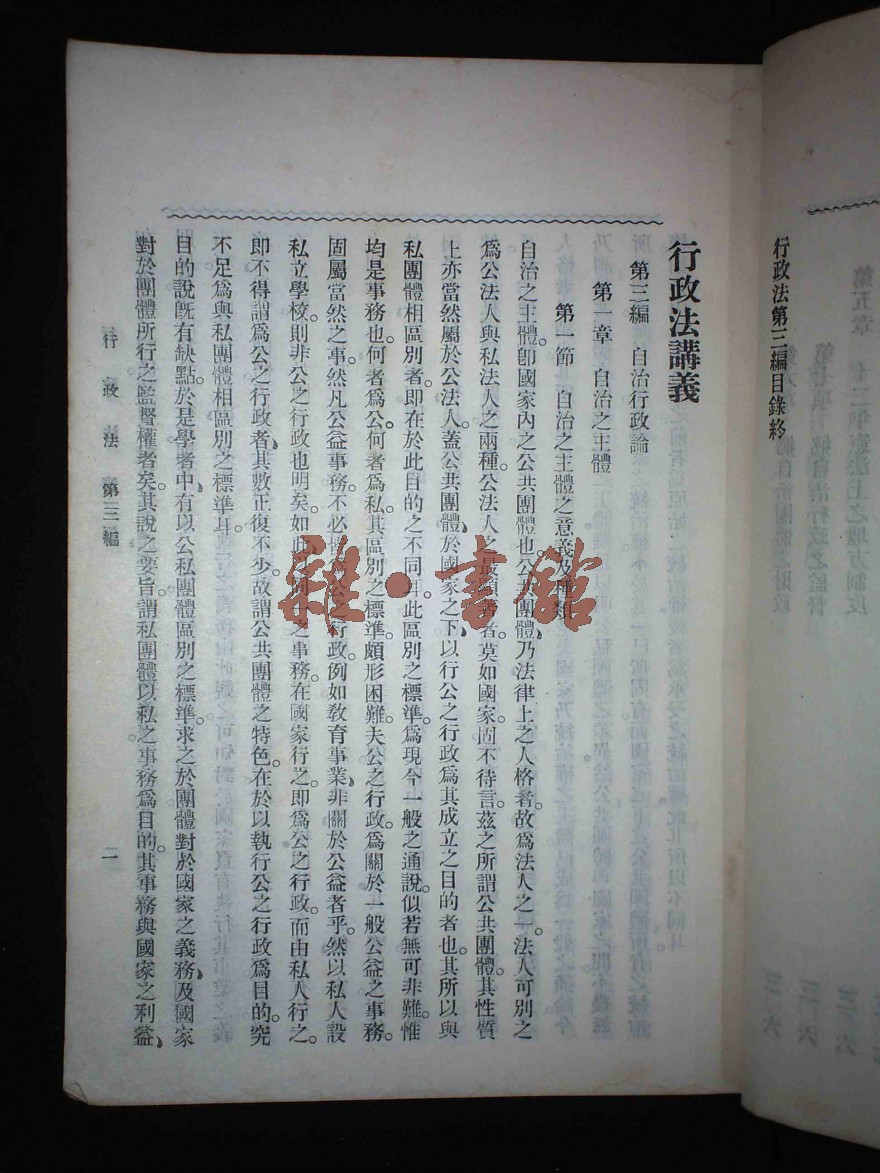 行政法第三編目錄終
行政法講義
第三編　自治行政論
第一章　自治之主體
第一節　自治之主體之意義及種類
自治之主體。卽國家內之公共團體也。公共團體、乃法律上之人格者。故爲法人之一。法人可別之
爲公法人與私法人之兩種。公法人之最顯著者。莫如國家。固不待言。茲之所謂公共團體。其性質
上亦當然屬於公法人。蓋公共團體、於國家之下、以行公之行政爲其成立之目的者也。其所以與
私團體相區別者。卽在於此目的之不同耳。此區別之標準。爲現今一般之通說。似若無可非難。惟
均是事務也。何者爲公。何者爲私。其區別之標準。頗形困難。夫公之行政。爲關於一般公益之事務。
固屬當然之事。然凡公益事務。不必皆爲公之行政。例如敎育事業、非關於公益者乎。然以私人設
私立學校。則非公之行政也明矣。如此以同一之事務。在國家行之。卽爲公之行政。而由私人行之。
卽不得謂爲公之行政者、其數正復不少。故謂公共團體之特色。在於以執行公之行政爲目的。究
不足爲與私團體相區別之標準耳。
目的說旣有缺點。於是學者中、有以公私團體區別之標準。求之於團體對於國家之義務、及國家
對於團體所行之監督權者矣。其說之要旨。謂私團體以私之事務爲目的。其事務與國家之利益、
行政法　第三編
一
雜·書館